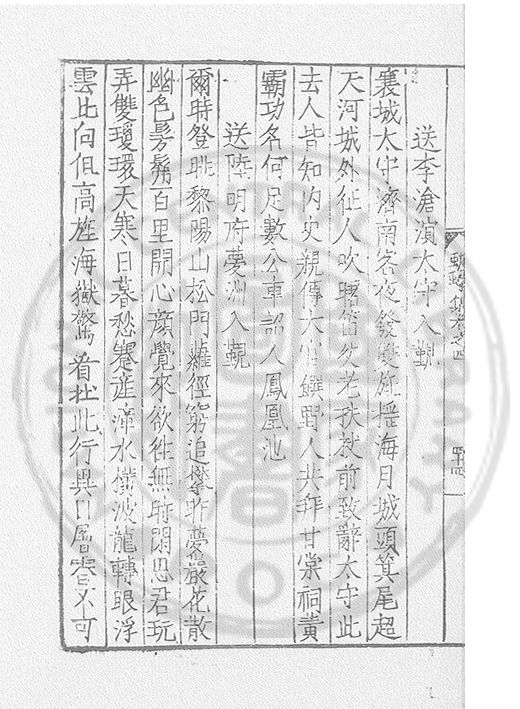 送李滄溟太守入覲
襄城太守濟南客夜發雙旌搖海月城頭箕尾超
天河城外征人吹曙笛父老扶杖前致辭太守此
去人皆知內史親傳大官饌野人共拜甘棠祠黃
霸功名何足數公車詔人鳳凰池
送陸明府夢洲入覲
爾時登眺黎陽山松門蘿徑窮追攀昨夢巖花散
幽色髣髴百里開心顏覺來欲往無時閒思君玩
弄雙瓊環天寒日暮愁蹇產漳水橫波龍轉眼浮
雲北向但高旌海嶽驚看
此行與
不可